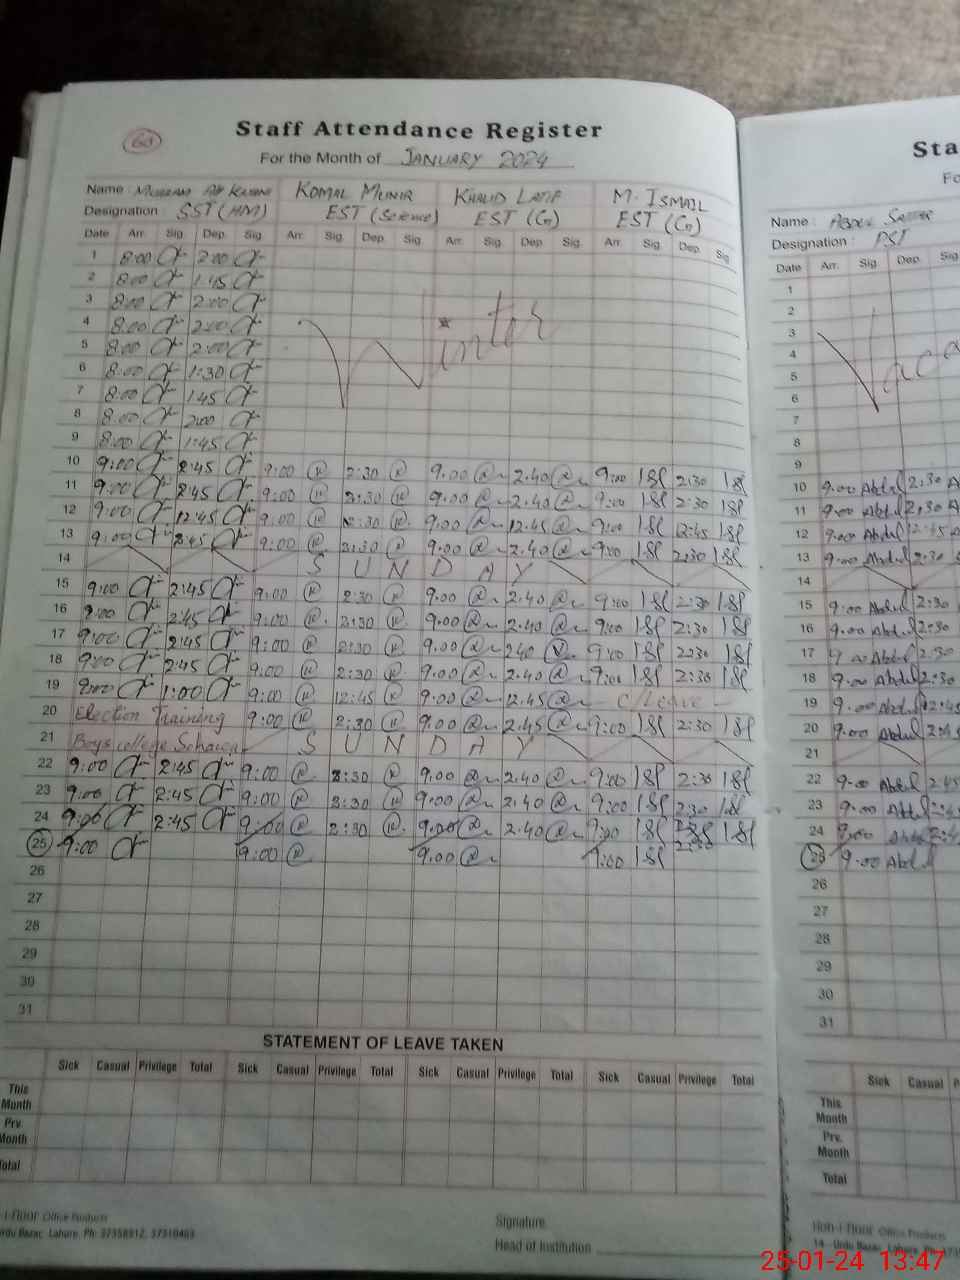 60
Staff Attendance Register
For the Month of JANUARY 2024
Name : KOMAL MUNIR KHALID LATIF M. ISMAIL
Designation : SST (HM) EST (Science) EST (G) EST (G)
Date Arr. Sig. Dep. Sig. Arr. Sig. Dep. Sig. Arr. Sig. Dep. Sig. Arr. Sig. Dep. Sig.
1 8:00 2:00
2 8:00 1:45
3 8:00 2:00
4 8:00 2:00 Winter
5 8:00 2:00
6 8:00 1:30
7 8:00 1:45
8 8:00 2:00
9 8:00 1:45
10 9:00 2:45 9:00 2:30 9.00 2.40 9:00 2:30
11 9:00 2:45 9:00 2:30 9.00 2.40 9:00 2:30
12 9:00 12:45 9:00 12:30 9.00 12.45 9:00 12:45
13 9:00 2:45 9:00 2:30 9.00 2.40 9:00 2:30
14 S U N D A Y
15 9:00 2:45 9:00 2:30 9.00 2.40 9:00 2:30
16 9:00 2:45 9:00 2:30 9.00 2.40 9:00 2:30
17 9:00 2:45 9:00 2:30 9.00 2.40 9:00 2:30
18 9:00 2:45 9:00 2:30 9.00 2.40 9:00 2:30
19 9:00 1:00 9:00 12:45 9.00 12.45 C/Leave
20 Election Training 9:00 2:30 9.00 2.45 9:00 2:30
21 Boys college S U N D A Y
22 9:00 2:45 9:00 2:30 9.00 2.40 9:00 2:30
23 9:00 2:45 9:00 2:30 9.00 2.40 9:00 2:30
24 9:00 2:45 9:00 2:30 9.00 2.40 9:00 2:30
25 9:00 9:00 9.00 9:00
26
27
28
29
30
31
STATEMENT OF LEAVE TAKEN
Sick Casual Privilege Total Sick Casual Privilege Total Sick Casual Privilege Total Sick Casual Privilege Total
This Month
Prv. Month
Total
Office Products
Urdu Bazar, Lahore. Ph: 37358912, 37310463
Signature
Head of Institution
Sta
Fo
Name :
Designation : PST
Date Arr. Sig. Dep. Sig
1
2
3
4 Vaca
5
6
7
8
9
10 9.00 Abdul 2:30
11 9.00 Abdul 2:30
12 9:00 Abdul 12:45
13 9:00 Abdul 2:30
14
15 9:00 Abdul 2:30
16 9.00 Abdul 2:30
17 9.00 Abdul 2:30
18 9.00 Abdul 2:30
19 9.00 Abdul 12:45
20 9:00 Abdul 2:45
21
22 9:00 Abdul 2:45
23 9:00 Abdul
24 9:00 Abdul
25 9:00 Abdul
26
27
28
29
30
31
Sick Casual
This Month
Prv. Month
Total
Office Products
14 - Urdu Bazar, Lahore.
25-01-24 13:47